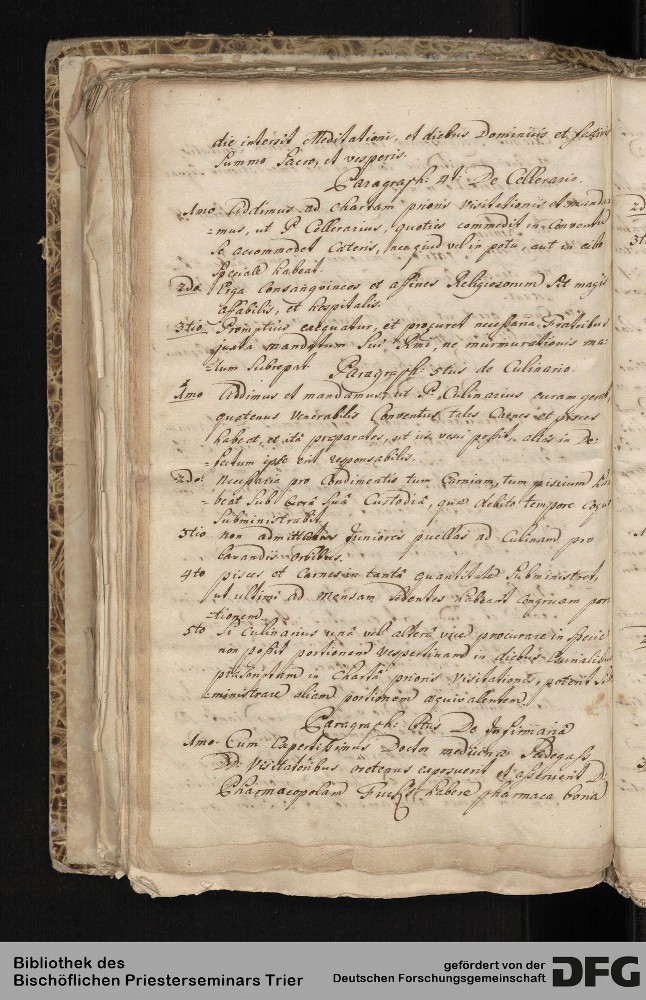 die intersit Meditationi, et diebus Dominicis et festivis
Summo Sacro, et vesperis.
Paragraph: 4t: De Cellerario.
1mo Addimus ad chartam prioris visitationis et manda
=mus, ut P Cellerarius, quoties commedit in Conventu
se accommodet Cateris, nec quid vel in potu, aut in cibo
speciale habeat.
2do. Erga Consanguineos et affines Religiosorum sit magis
affabilis, et hospitalis.
3tio Promptius exequatur, et procuret necessaria Fratribus
juxta mandatum sui Rmi, ne murmurationis ma:
=tum subrepat Paragraph: 5tus de Culinario.
1mo Addimus et mandamus, ut P. Culinarius curam gerat,
quatenus Venerabilis Conventus tales Carnes et pisces
habeat, et ità præparatos, ut iis vesci possit, alias in De:
=fectum ipse erit responsabilis.
2do. Necessaria pro Condimentis tum Carnium, tum piscium ha
=beat sub serâ suâ Custodiâ, quæ debito tempore Coquo
subministrabit.
3tio non admittat Juniores puellas ad Culinam pro
lavandis orbibus.
4to pisces et Carnes in tantâ quantitate subministret,
ut ultimi ad mensam sedentes habeant congruam por
=tionem.
5to Si Culinarius unâ vel alterâ vice procurare in specie
non possit portionem vespertinam in diebus
præscriptam in Chartâ prioris Visitationis, poterit sub
=ministrare aliam portionem æquivalentem.
Paragraph: 6tus De Infirmariâ
1mo. Cum Expertissimus Doctor medicinæ
DD. Visitatoribus oretenus exposuerit et asseruerit D.
Pharmacopolam habere pharmaca bona
Bibliothek des
Bischöflichen Priesterseminars Trier
gefördert von der
Deutschen Forschungsgemeinschaft
DFG